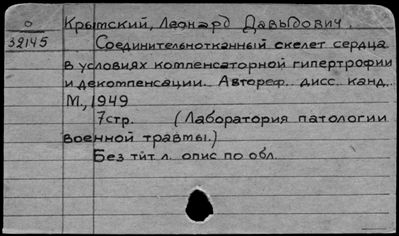 О Крытский, Леонард Давыдович.
32145 Соединительнотканный скелет сердца
в условиях компенсаторной гипертрофии
и декомпенсации. Автореф. дисс. канд.
М., 1949
7стр. (Лаборатория патологии
военной травмы.)
Без тит. л. опис по обл.